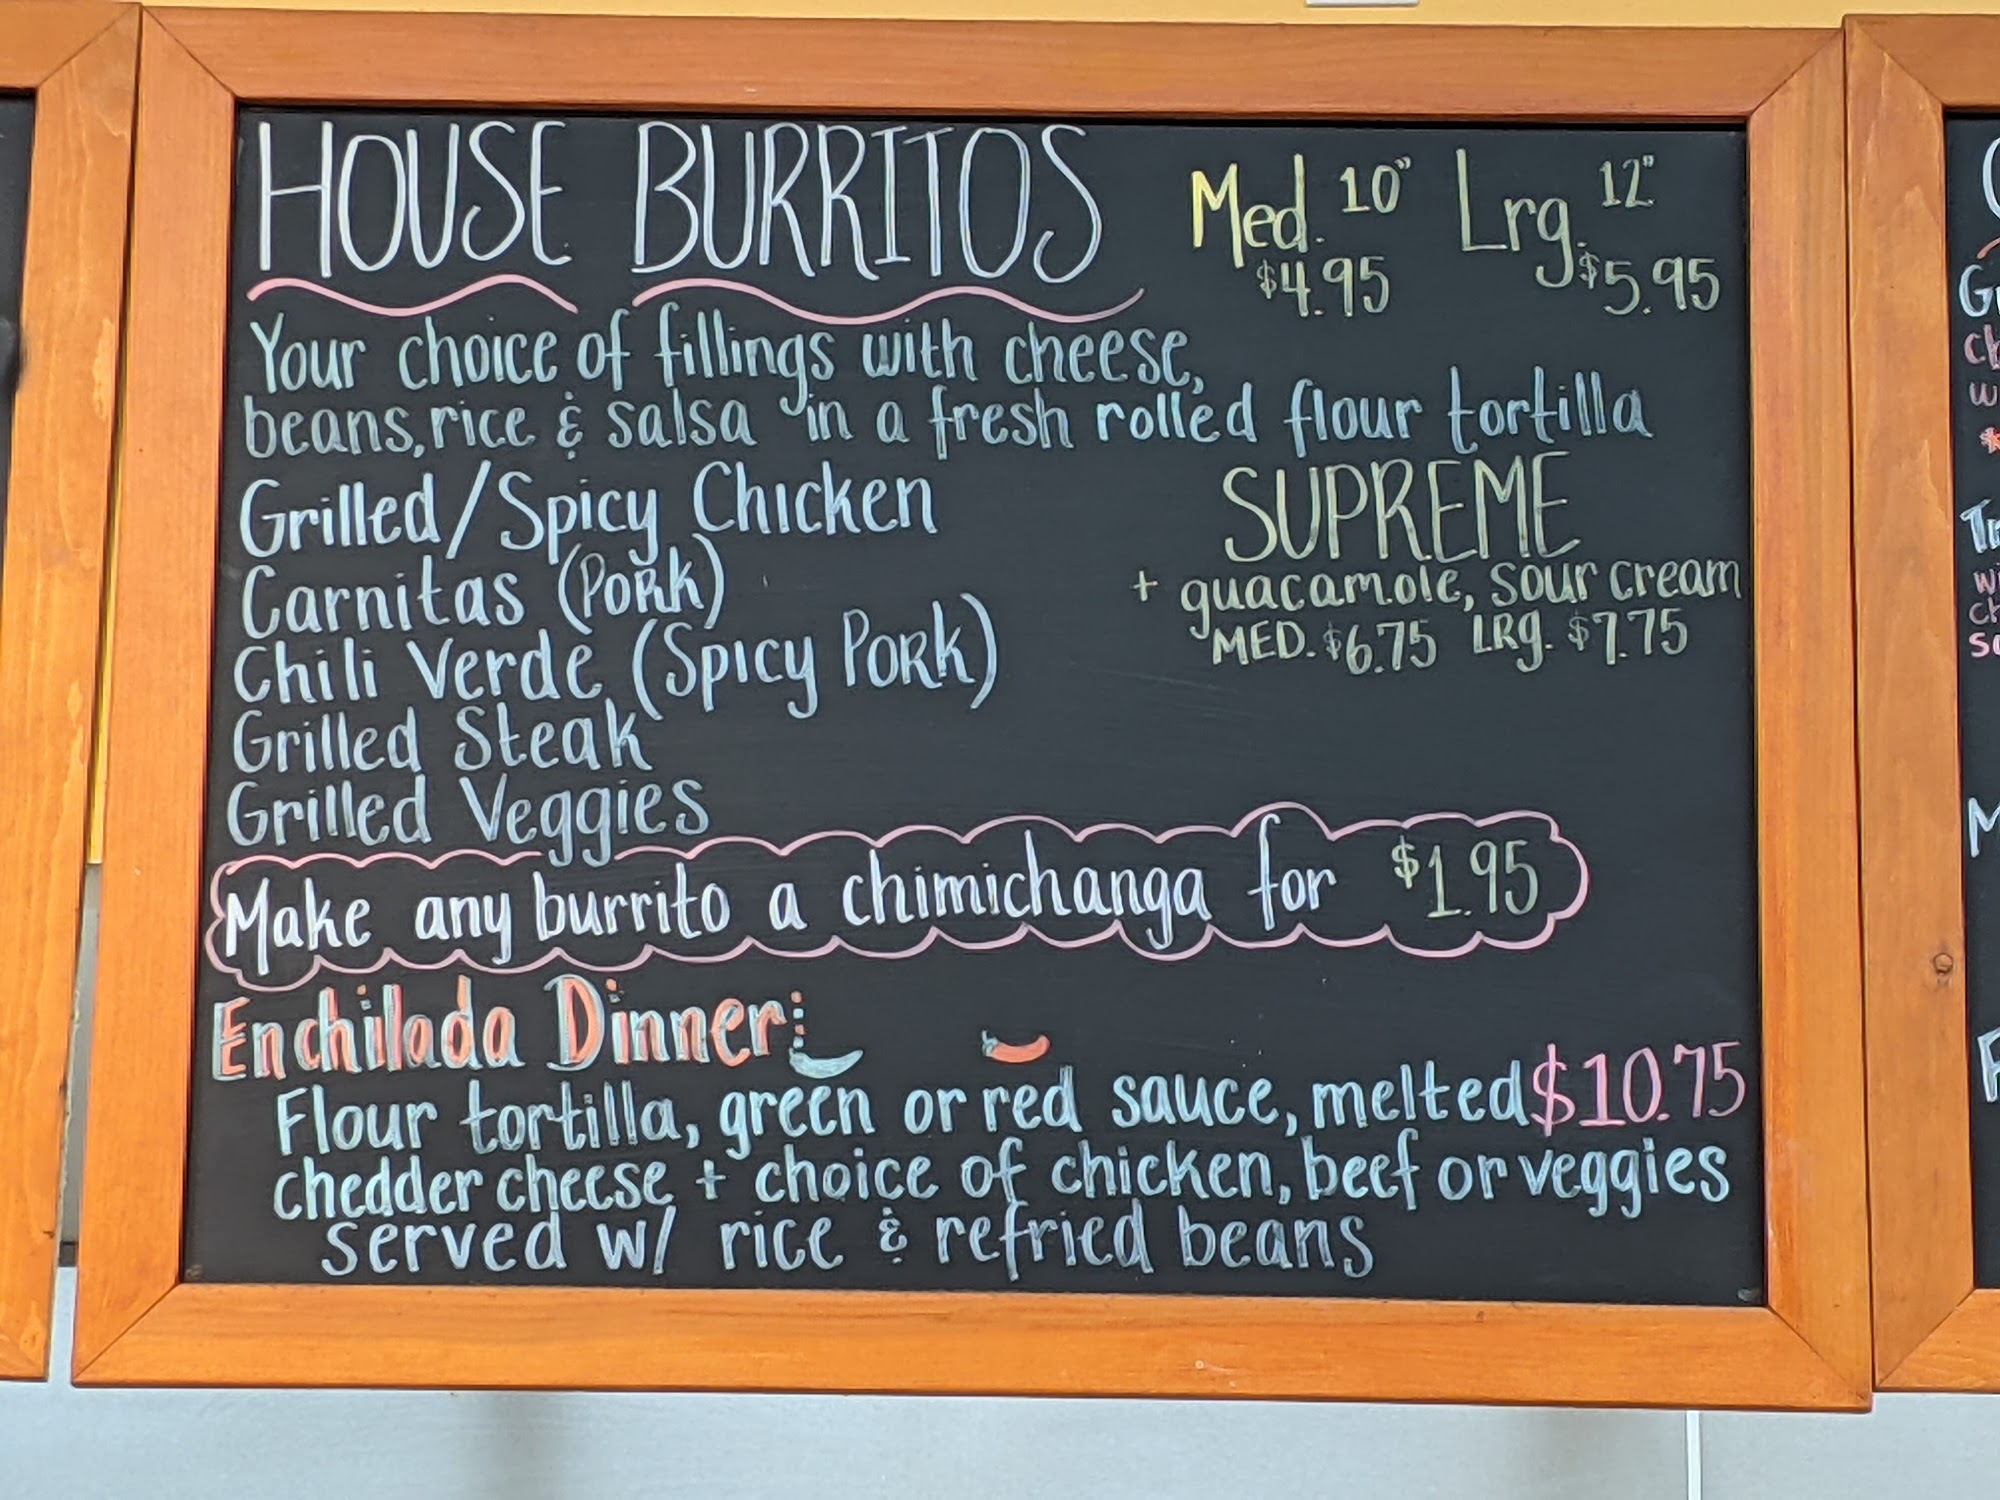 HOUSE BURRITOS
Med. 10" Lrg. 12"
$4.95 $5.95
Your choice of fillings with cheese,
beans, rice & salsa in a fresh rolled flour tortilla
Grilled/Spicy Chicken
Carnitas (Pork)
Chili Verde (Spicy Pork)
Grilled Steak
Grilled Veggies
SUPREME
+ guacamole, sour cream
MED. $6.75 LRg. $7.75
Make any burrito a chimichanga for $1.95
Enchilada Dinner:
Flour tortilla, green or red sauce, melted $10.75
chedder cheese + choice of chicken, beef or veggies
served w/ rice & refried beans